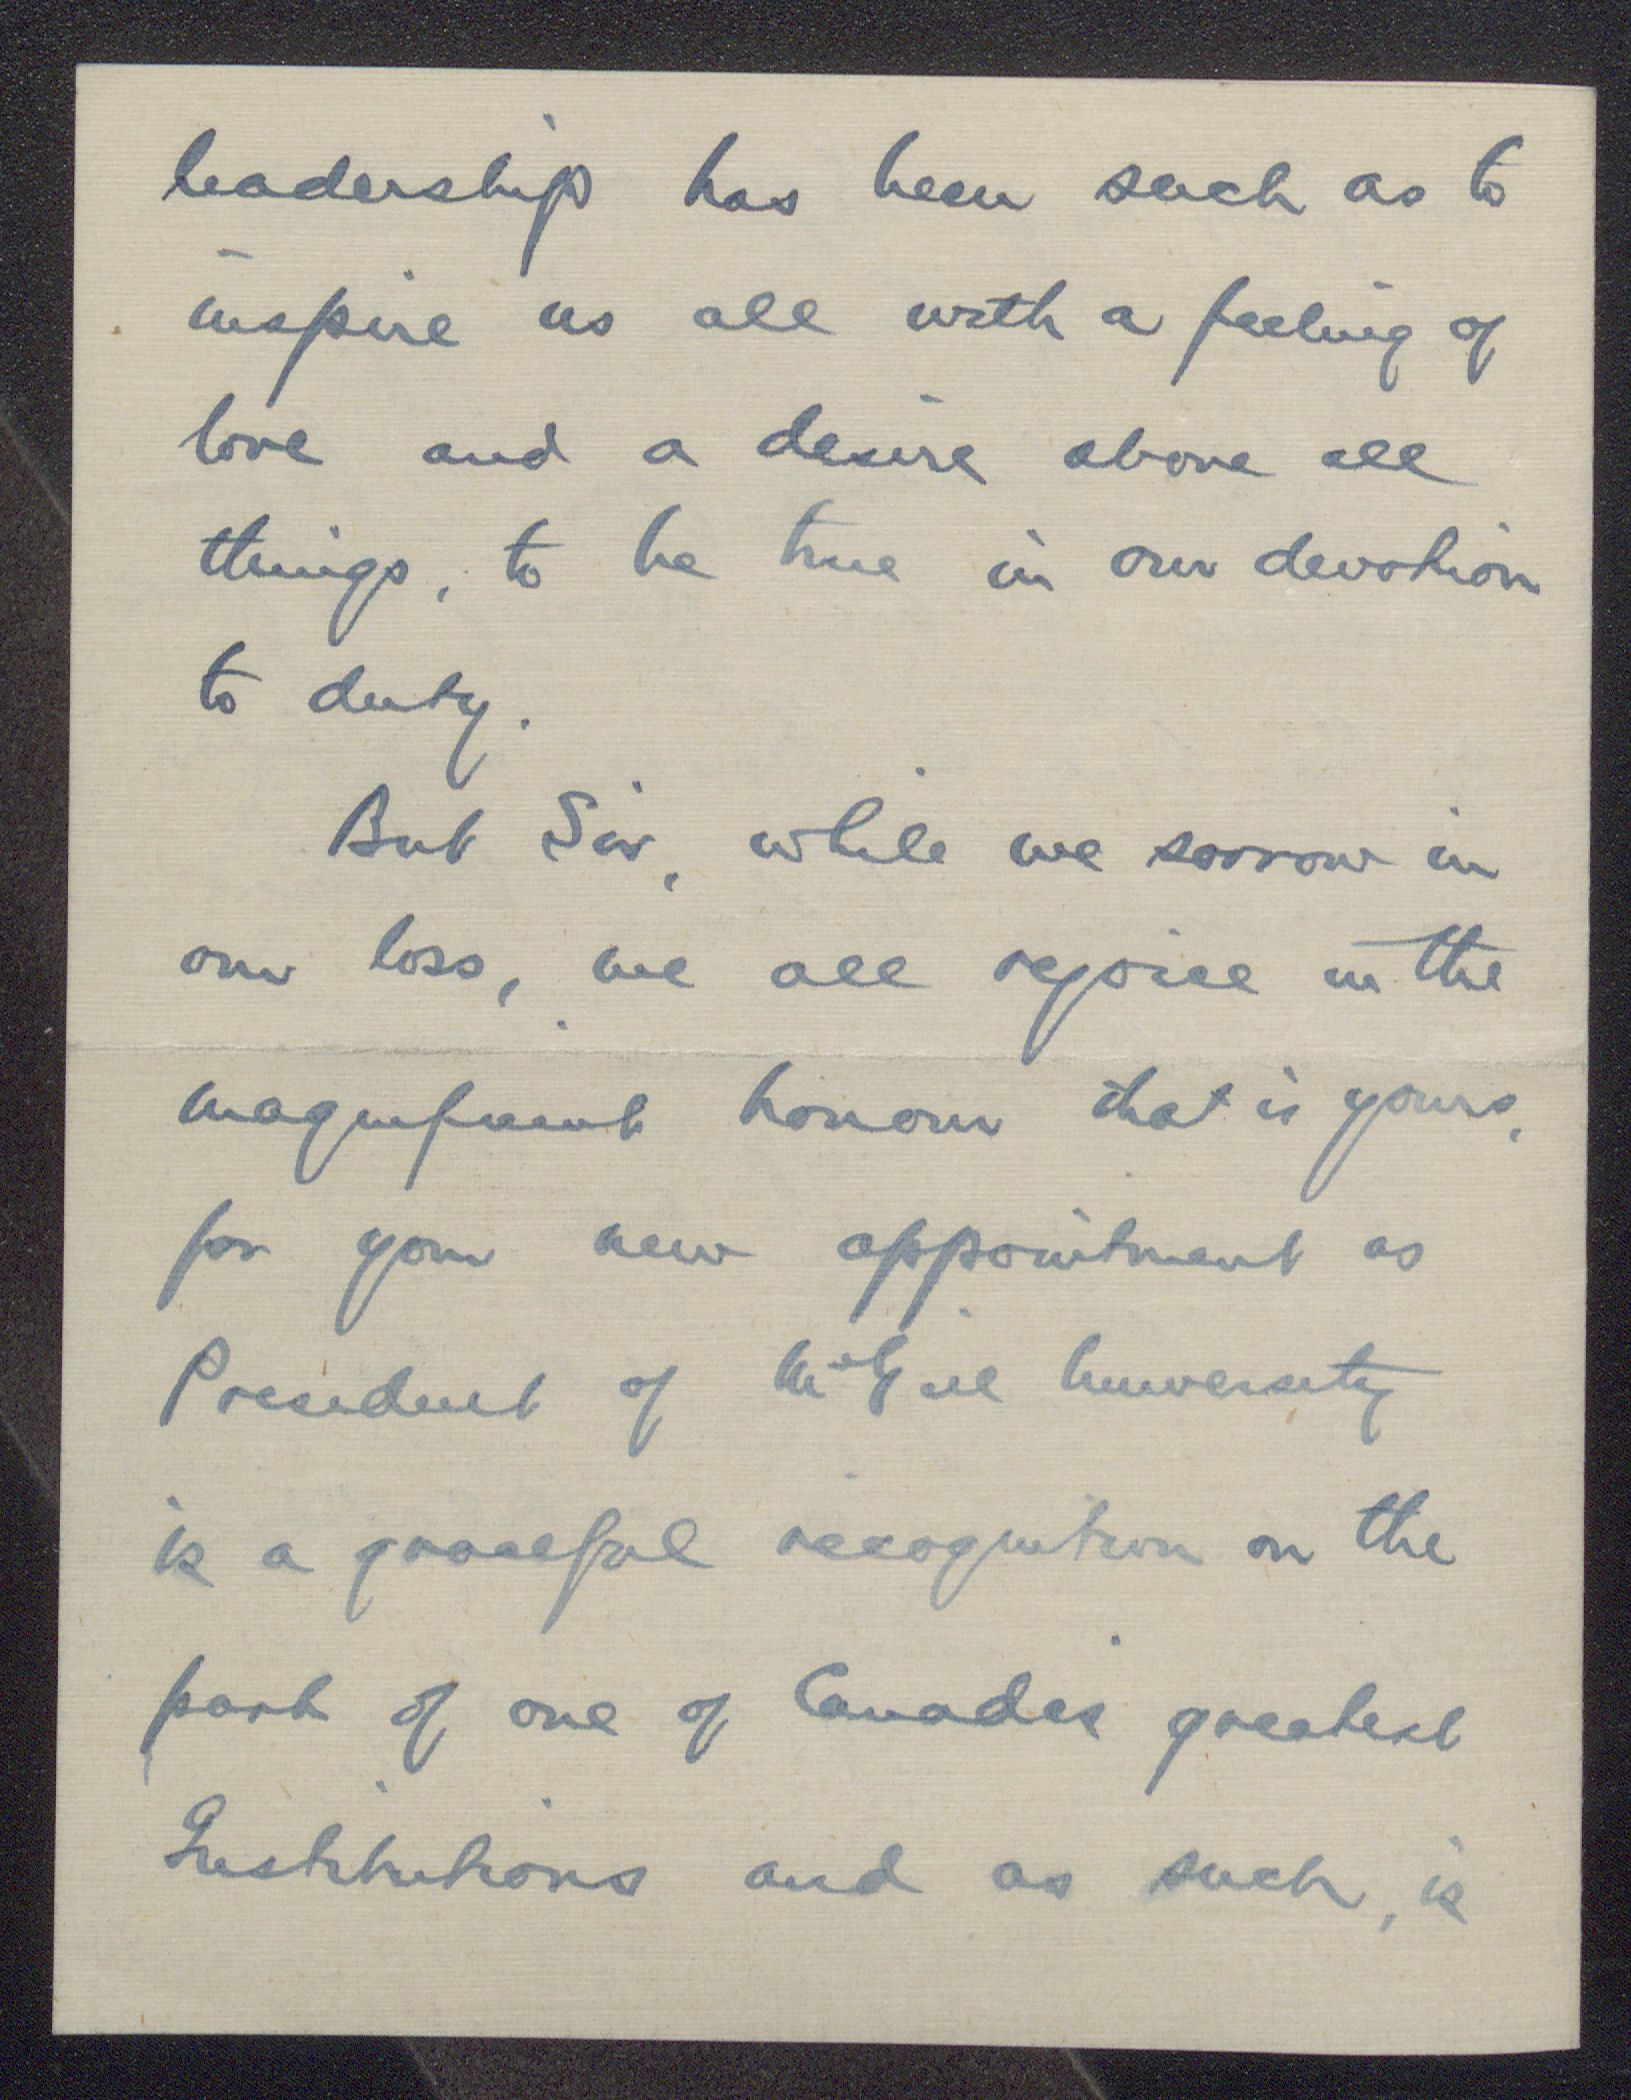 leadership has been such as to
inspire us all with a feeling of
love and a desire above all
things, to be true in our devotion
to duty.
But Sir, while we sorrow in
our loss, we all rejoice in the
magnificent honour that is yours,
for your new appointment as
President of McGill University
is a graceful recognition on the
part of one of Canadas greatest
Institutions and as such, is